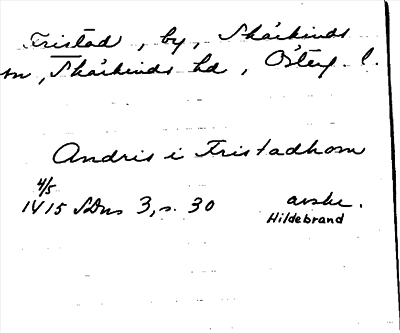 Fristad, by, Skärkinds
sn, Skärkinds hd, Östergl.
Andris i Fristadhom
4/5
1415 SDns 3, s. 30 avskr.
Hildebrand